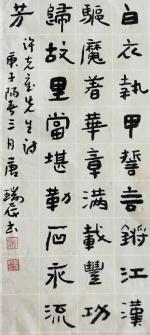 白衣執甲誓言鏘江漢
驅魔著華章滿載豐功
歸故里當堪勒石永流
芳
许 先生诗
庚子陽春三月唐
瑞 书